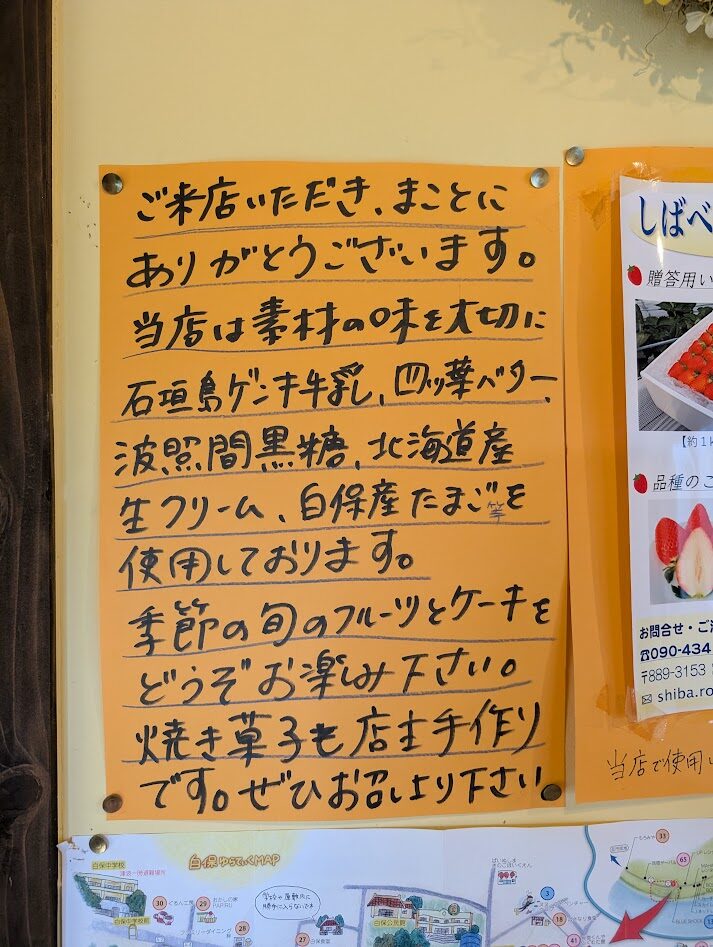 ご来店いただき、まことに
ありがとうございます。
当店は素材の味を大切に
石垣島ゲンキ牛乳、四ッ葉バター、
波照間黒糖、北海道産
生クリーム、白保産たまご等を
使用しております。
季節の旬のフルーツとケーキを
どうぞお楽しみ下さい。
焼き菓子も店主手作り
です。ぜひお召しより下さい
しばべ
贈答用い
【約1k
品種のこ
お問合せ・ご
☎090-434
〒889-3153
✉ shiba.ro
当店で使用
白保ゆらてぃくMAP
白保中学校
白保中学校前
30
29
おかしの家
PAPIRU
28
ファミリーダイニング
27
白保食堂
白保公民館
3
18
41
33
65